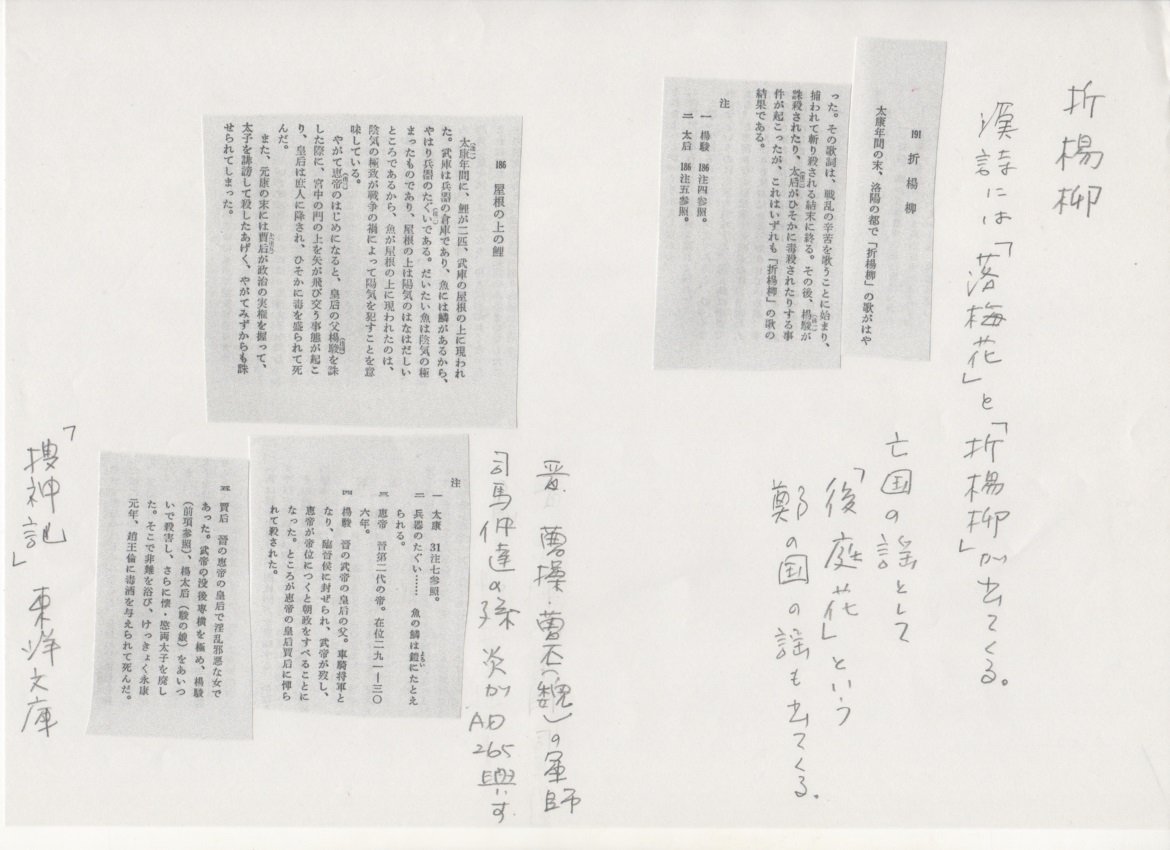 折楊柳
漢詩には「落梅花」と「折楊柳」が出てくる。
亡国の謡として
「後庭花」という
鄭の国の謡も出てくる。
191 折楊柳
太康年間の末、洛陽の都で「折楊柳」の歌がはや
った。その歌詞は、戦乱の辛苦を歌うことに始まり、
捕われて斬り殺される結末に終る。その後、楊駿(注一)が
誅殺されたり、太后(注二)がひそかに毒殺されたりする事
件が起こったが、これはいずれも「折楊柳」の歌の
結果である。
注
一 楊駿 186注四参照。
二 太后 186注五参照。
晋、曹操・曹丕(魏)の軍師
司馬仲達の孫 炎が AD265興す
186 屋根の上の鯉
太康(注一)年間に、鯉が二匹、武庫の屋根の上に現われ
た。武庫は兵器の倉庫であり、魚には鱗があるから、
やはり兵器のたぐい(注二)である。だいたい魚は陰気の極
まったものであり、屋根の上は陽気のはなはだしい
ところであるから、魚が屋根の上に現われたのは、
陰気の極致が戦争の禍によって陽気を犯すことを意
味している。
やがて恵帝(注三)のはじめになると、皇后の父楊駿(注四)を誅
した際に、宮中の門の上を矢が飛び交う事態が起こ
り、皇后は庶人に降され、ひそかに毒を盛られて死
んだ。
また、元康の末には賈后(注五)が政治の実権を握って、
太子を誹謗して殺したあげく、やがてみずからも誅
せられてしまった。
注
一 太康 31注七参照。
二 兵器のたぐい…… 魚の鱗は鎧(よろい)にたとえ
られる。
三 恵帝 晋第二代の帝。在位二九一―三〇
六年。
四 楊駿 晋の武帝の皇后の父。車騎将軍と
なり、臨晉侯に封ぜられ、武帝が歿し、
恵帝が帝位につくと朝政をすべることに
なった。ところが恵帝の皇后賈后に憚ら
れて殺された。
五 賈后 晋の恵帝の皇后で淫乱邪悪な女で
あった。武帝の没後専横を極め、楊駿
(前項参照)、楊太后(駿の娘)をあいつ
いで殺害し、さらに懐・愍両太子を廃し
た。そこで非難を浴び、けっきょく永康
元年、趙王倫に毒酒を与えられて死んだ。
「捜神記」 東洋文庫